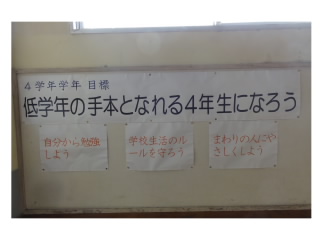 4学年学年目標
低学年の手本となれる4年生になろう
自分から勉強
しよう
学校生活のル
ールを守ろう
まわりの人にや
さしくしよう